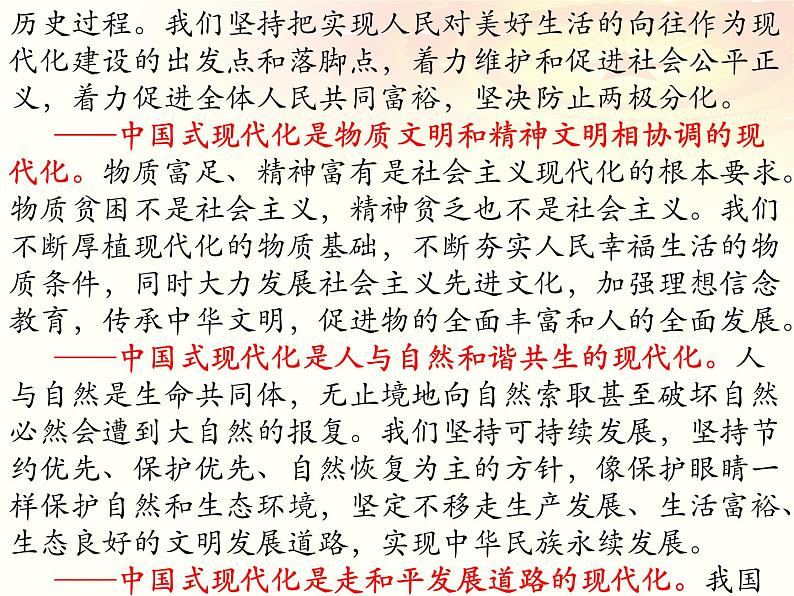 历史过程。我们坚持把实现人民对美好生活的向往作为现
代化建设的出发点和落脚点，着力维护和促进社会公平正
义，着力促进全体人民共同富裕，坚决防止两极分化。
——中国式现代化是物质文明和精神文明相协调的现
代化。物质富足、精神富有是社会主义现代化的根本要求。
物质贫困不是社会主义，精神贫乏也不是社会主义。我们
不断厚植现代化的物质基础，不断夯实人民幸福生活的物
质条件，同时大力发展社会主义先进文化，加强理想信念
教育，传承中华文明，促进物的全面丰富和人的全面发展。
——中国式现代化是人与自然和谐共生的现代化。人
与自然是生命共同体，无止境地向自然索取甚至破坏自然
必然会遭到大自然的报复。我们坚持可持续发展，坚持节
约优先、保护优先、自然恢复为主的方针，像保护眼睛一
样保护自然和生态环境，坚定不移走生产发展、生活富裕、
生态良好的文明发展道路，实现中华民族永续发展。
——中国式现代化是走和平发展道路的现代化。我国